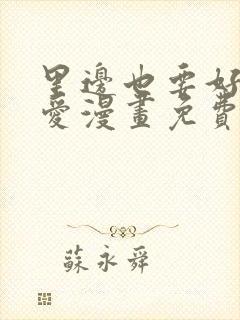 里邊也要好
愛漫畫免費
蘇永舜